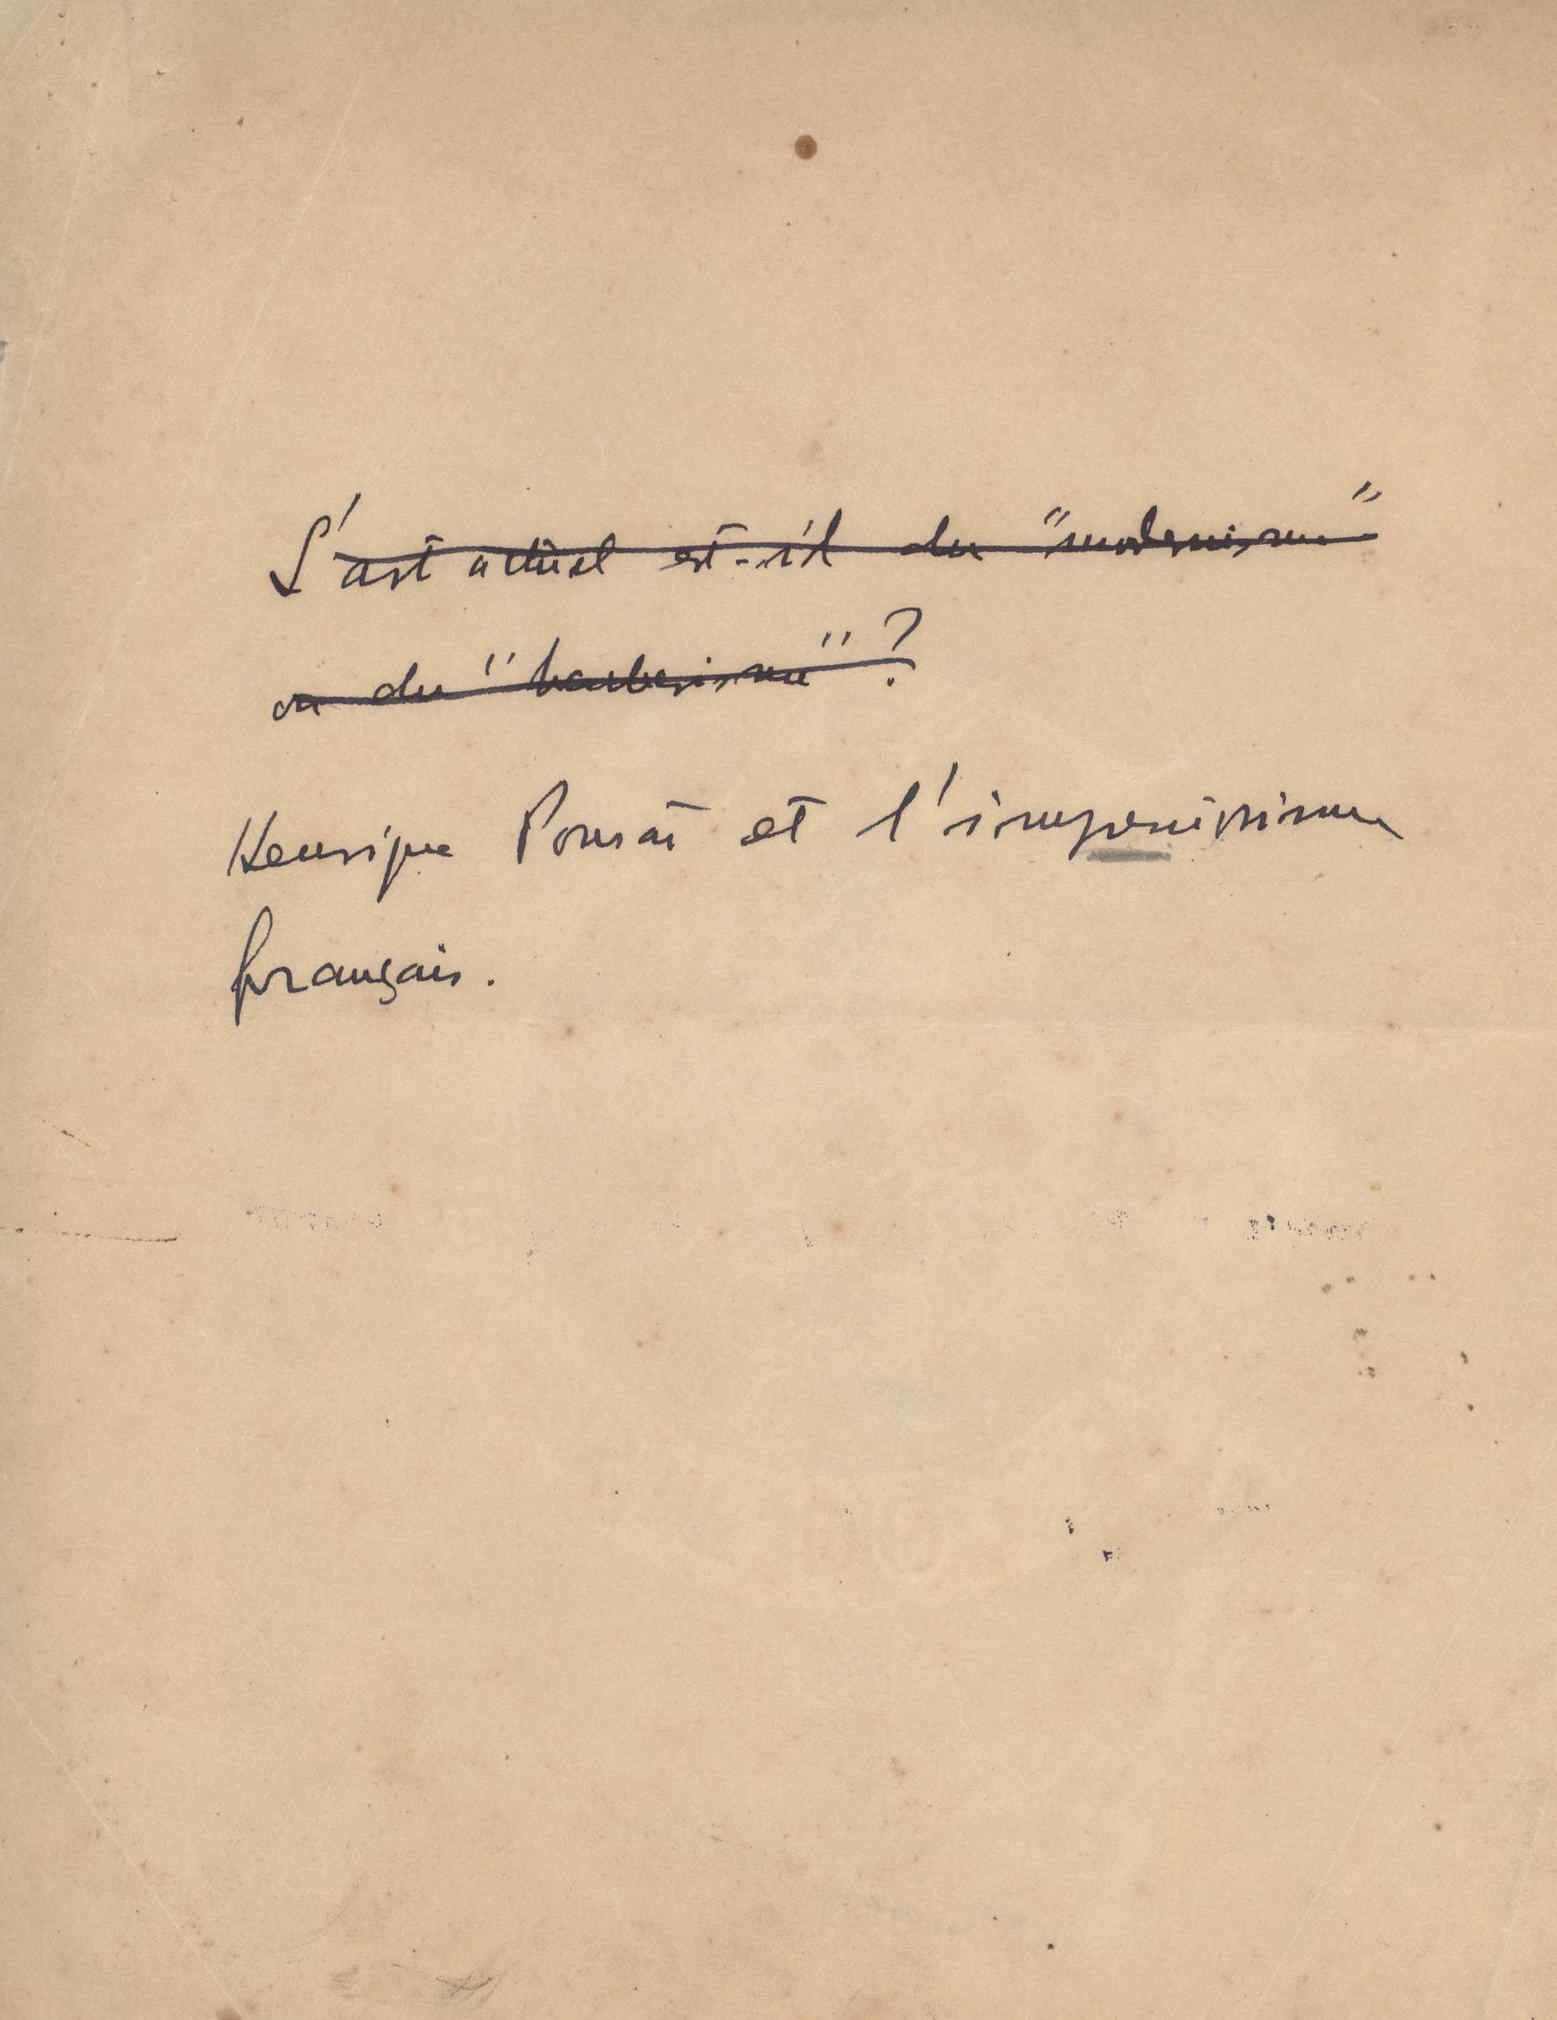 L'art actuel est-il du "modernisme"
ou du "barbarisme" ?
Henrique Pousão et l'impressionisme
français.